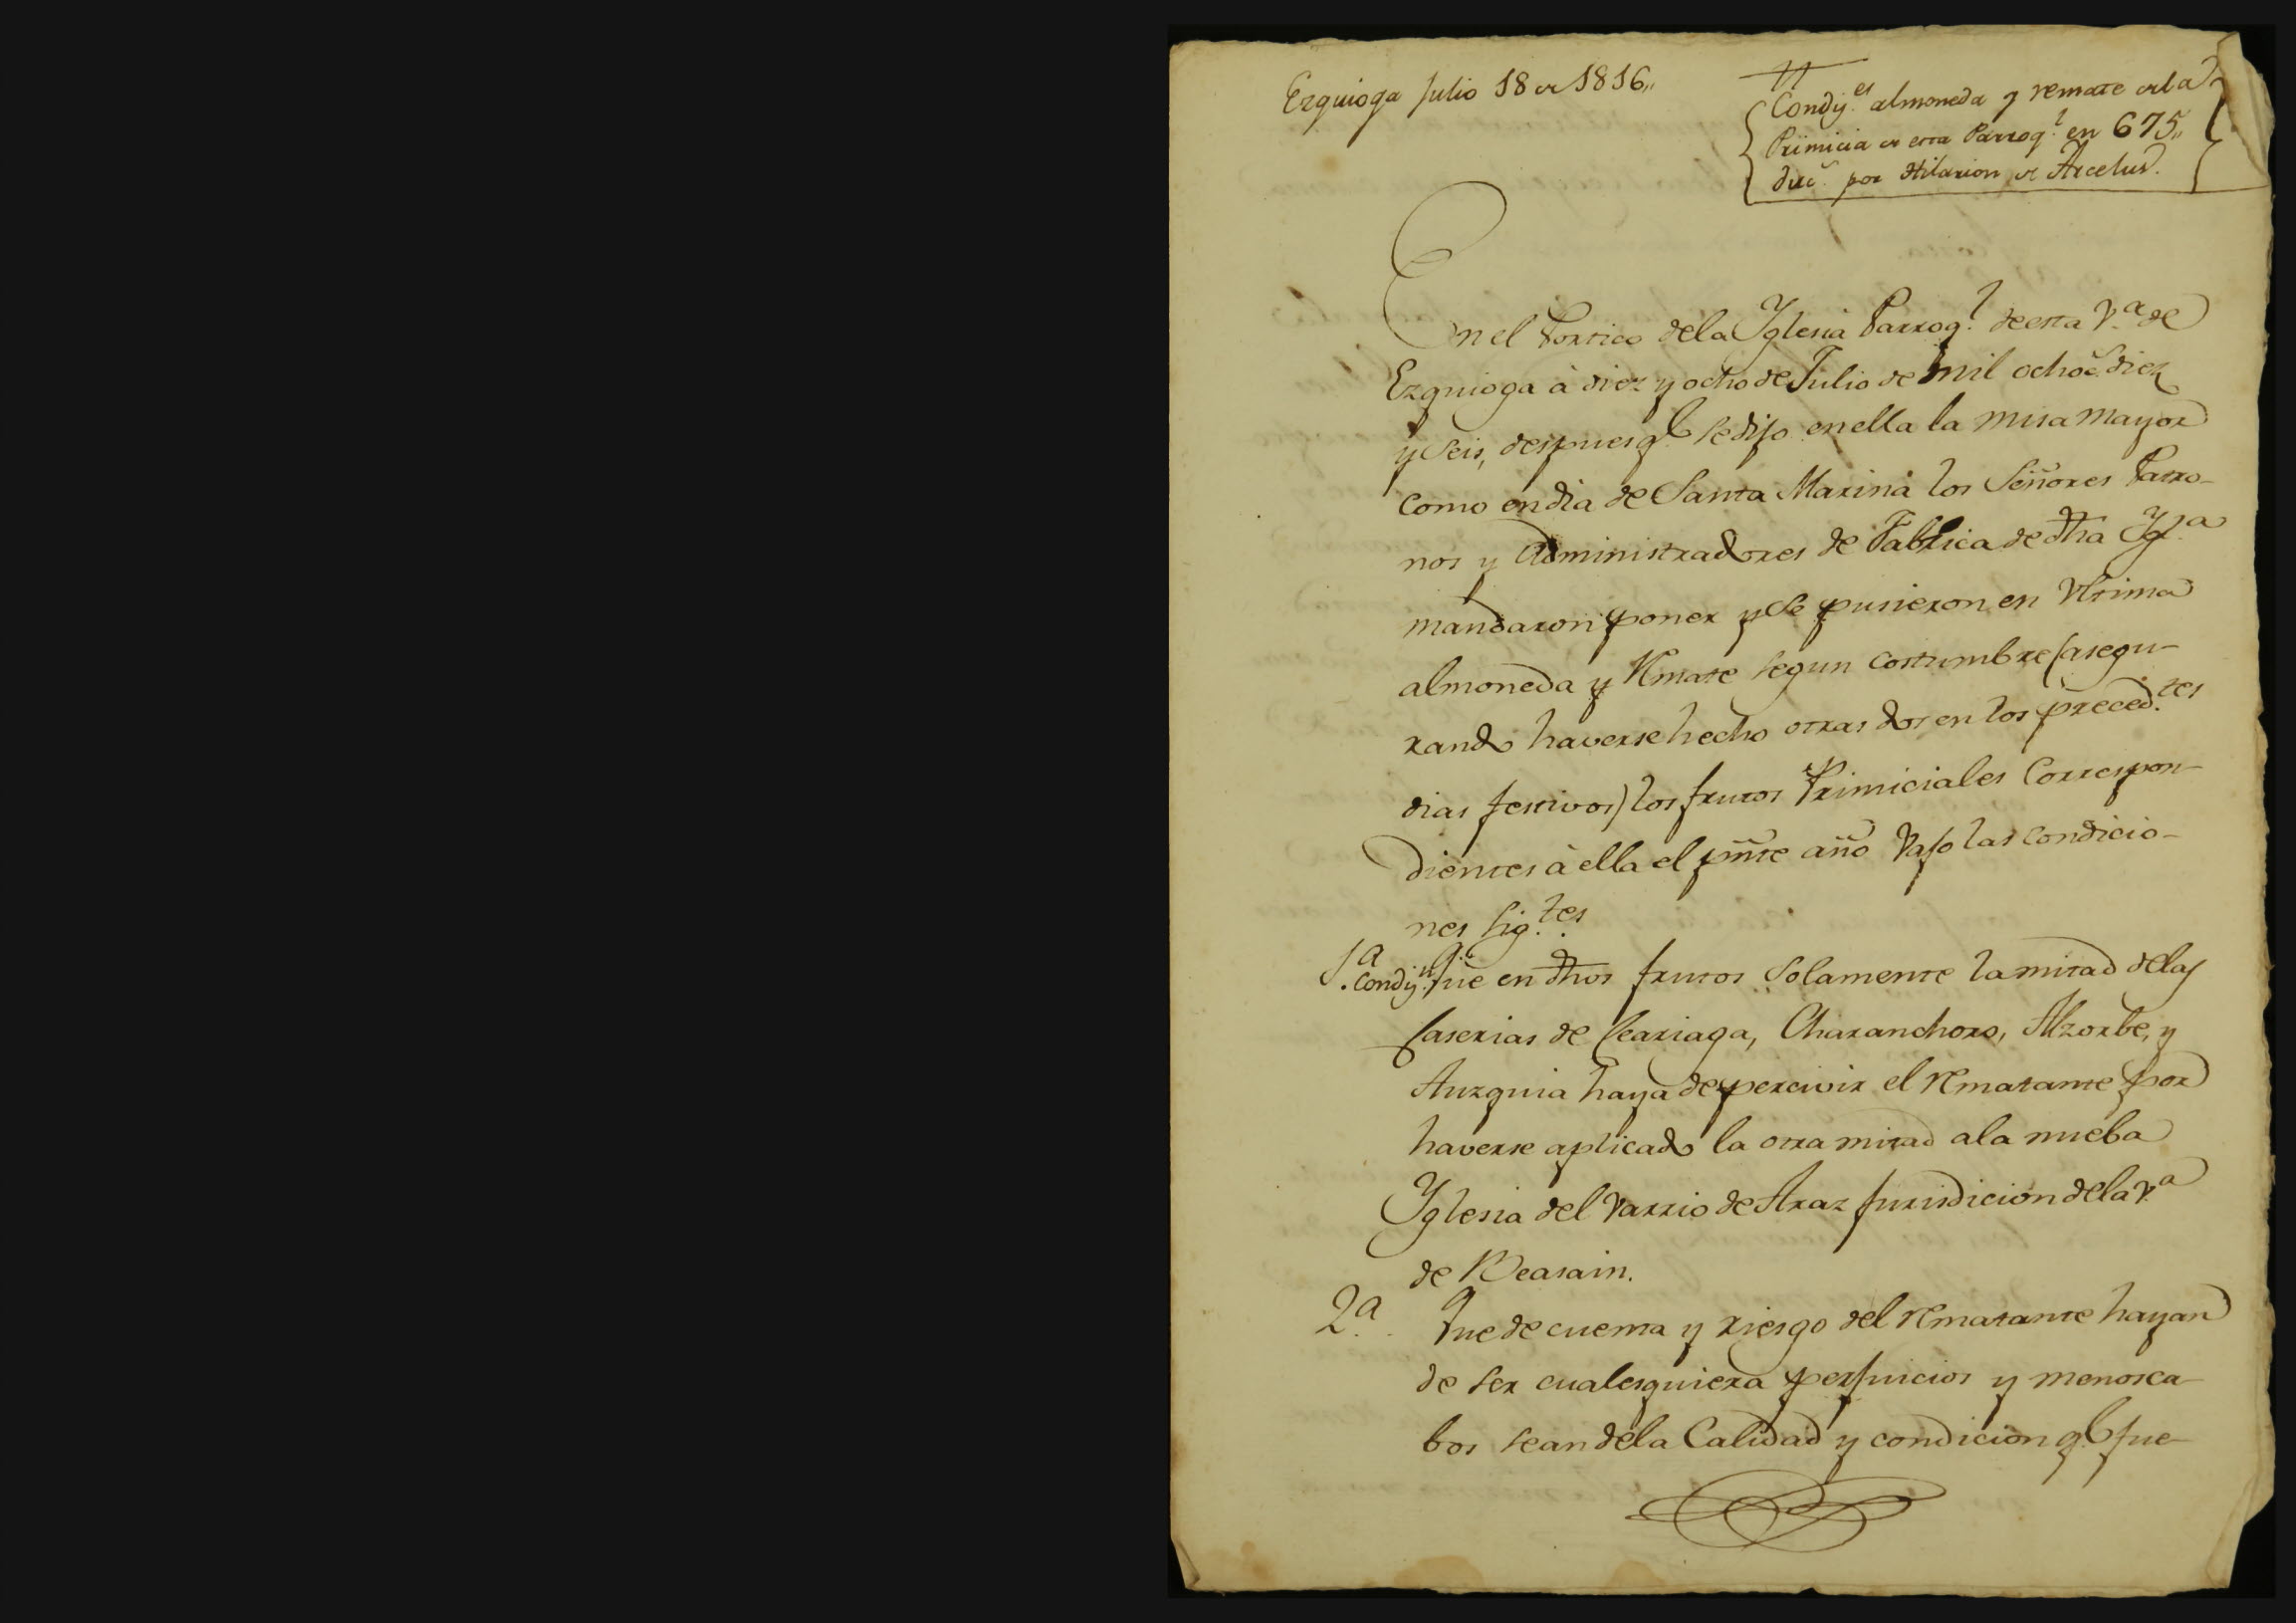 Ezquioga Julio 18 de 1816,,
Condi.es almoneda y remate de la
Primicia de esta Parroq.l en 675,,
duc.s por Hilarion de Arcelus.
En el Portico de la Yglesia Parroq.l de esta V.a de
Ezquioga à diez y ocho de Julio de mil ochoc.s diez
y seis, despues q.e se dijo en ella la misa mayor
como en dia de Santa Marina los Señores Patro-
nos y Administradores de Fabrica de dha Ygl.a
mandaron poner y se pusieron en Vltima
almoneda y Remate segun costumbre (asegu-
rando haverse hecho otras dos en los preced.tes
dias festivos) los frutos Primiciales Correspon-
dientes à ella el pñte año vajo las condicio-
nes sig.tes
1.a Condi.n Que en dhos frutos solamente la mitad de las
Caserias de Leariaga, Charanchoro, Alzorbe, y
Auzquia haya de percivir el rematante por
haverse aplicado la otra mitad a la nueba
Yglesia del varrio de Araz Jurisdicion de la V.a
de Beasain.
2.a Que de cuenta y riesgo del rematante hayan
de ser cualesquiera perjuicios y menosca-
bos sean de la Calidad y condicion q.e fue-